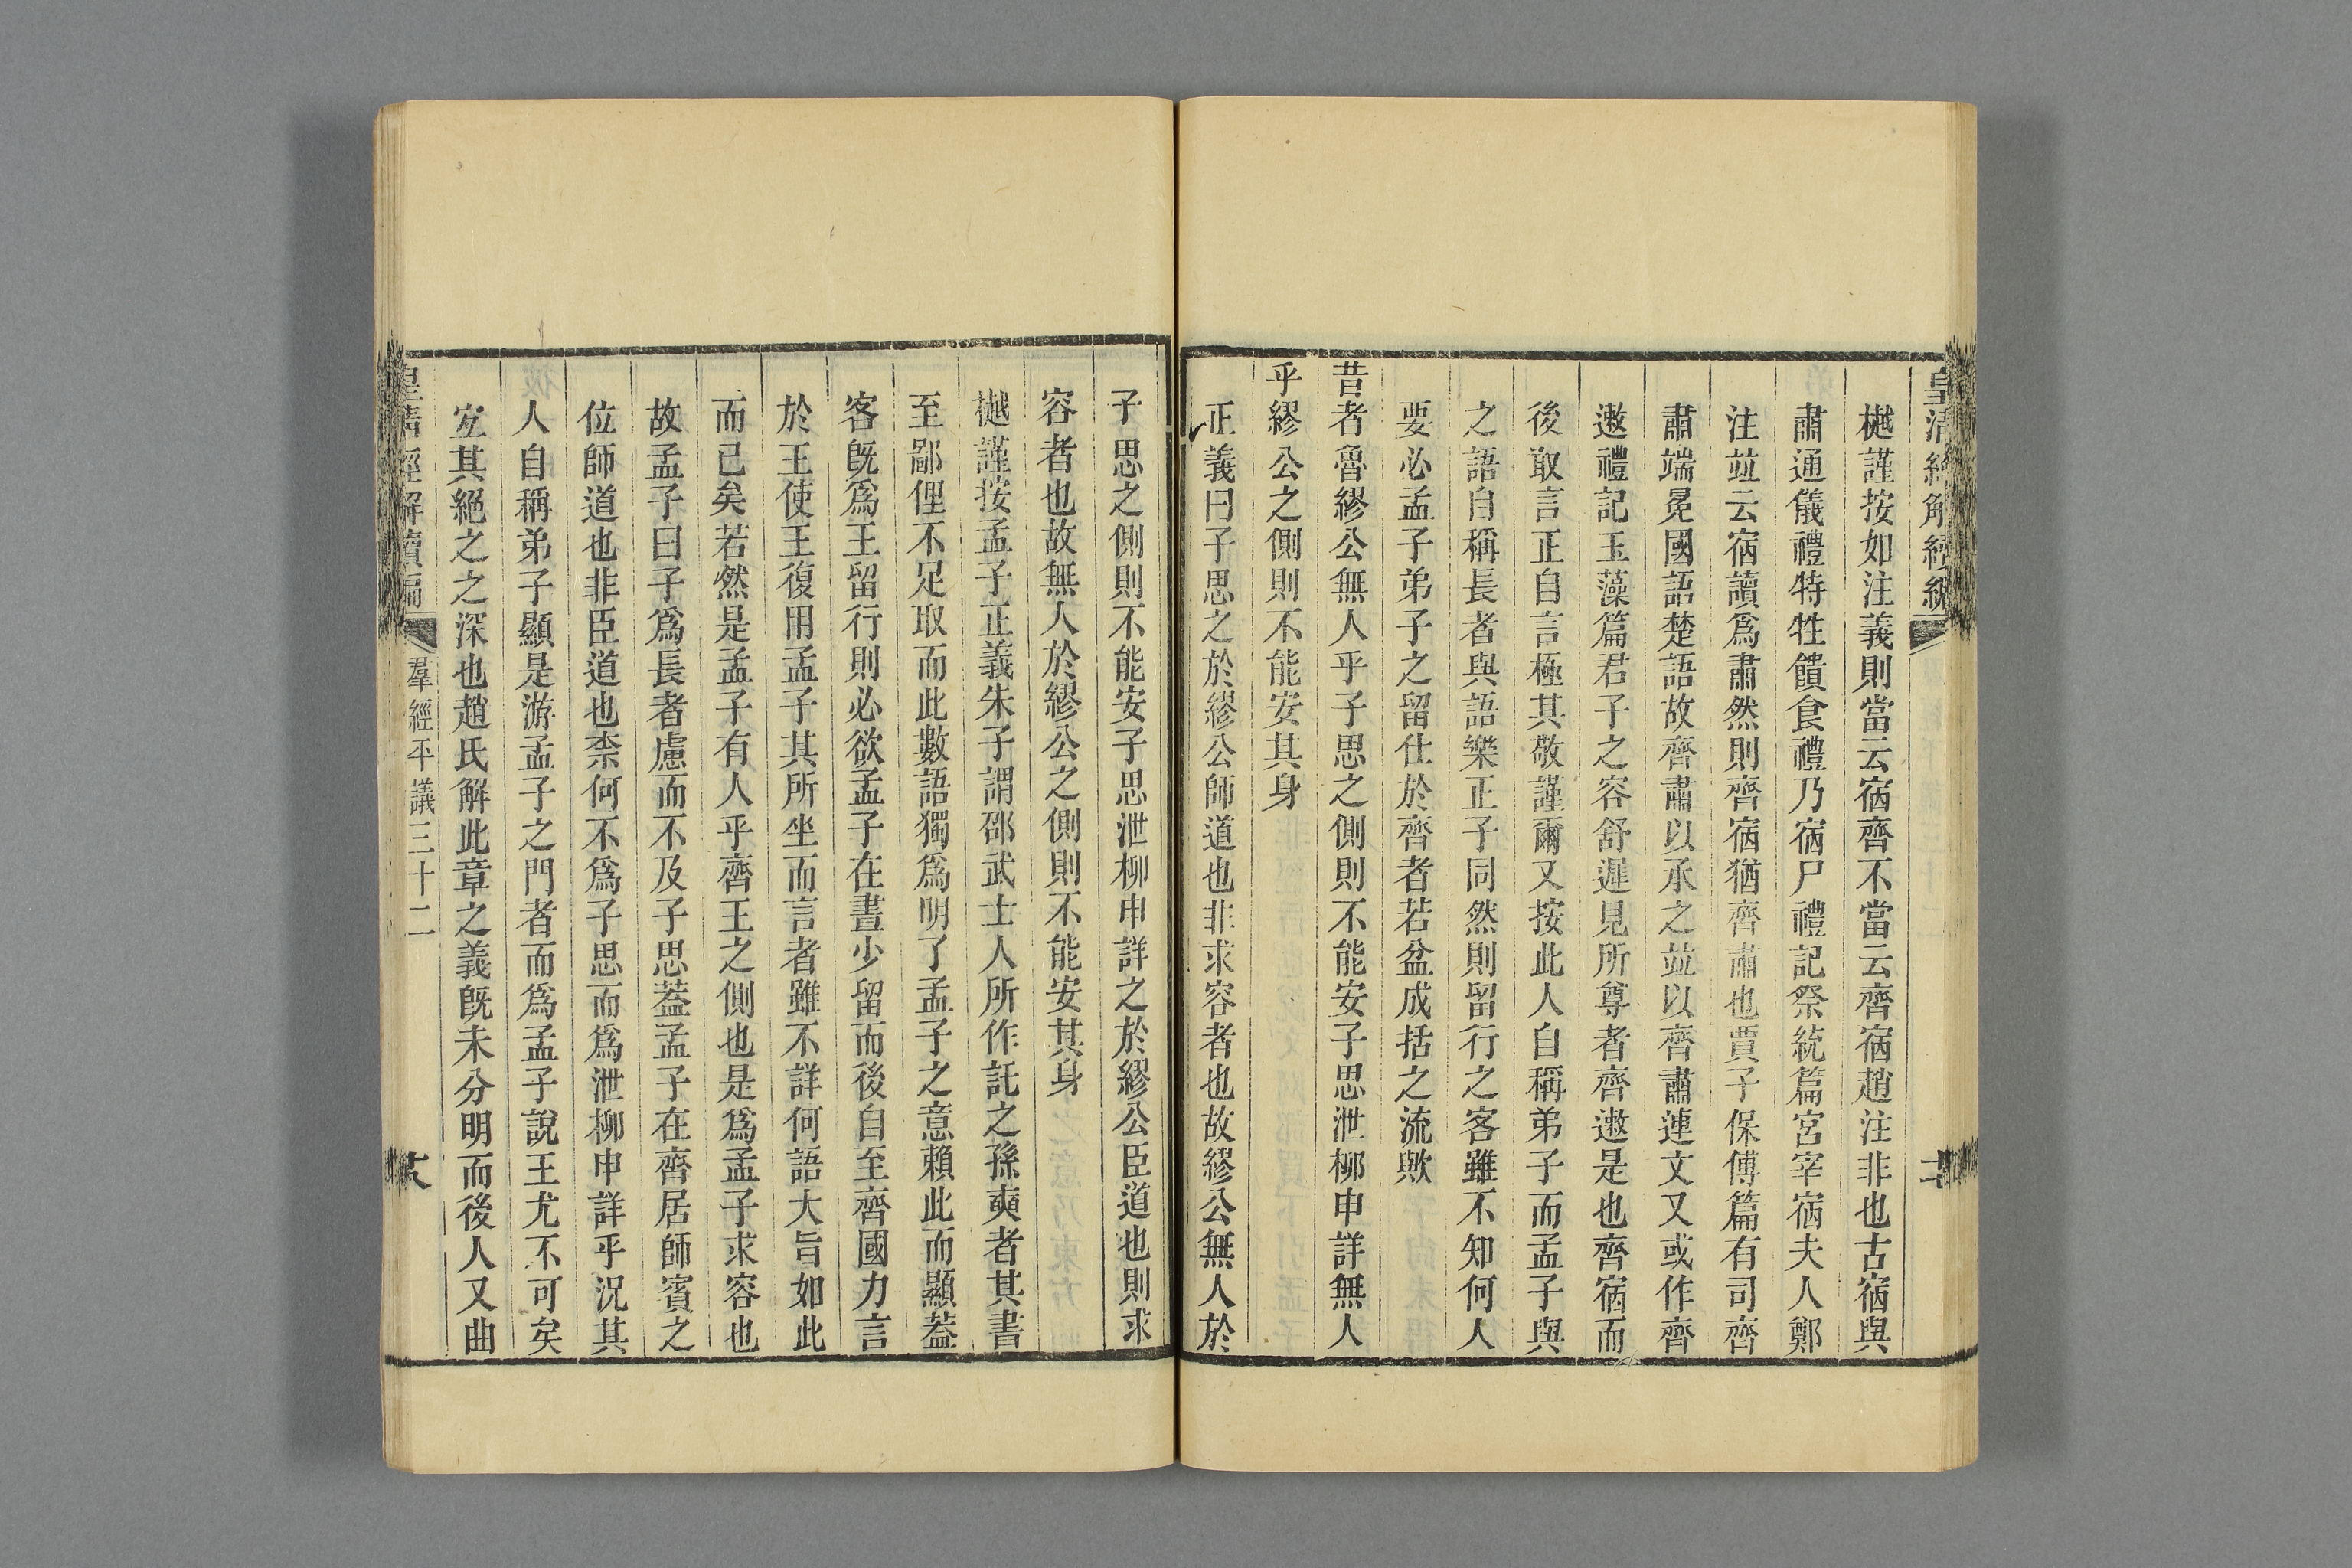 皇清經解續編
樾謹按如注義則當云宿齊不當云齊宿趙注非也古宿與
肅通儀禮特牲饋食禮乃宿尸禮記祭統篇宮宰宿夫人鄭
注竝云宿讀爲肅然則齊宿猶齊肅也賈子保傅篇有司齊
肅端冕國語楚語故齊肅以承之竝以齊肅連文又或作齊
遫禮記玉藻篇君子之容舒遲見所尊者齊遫是也齊宿而
後敢言正自言極其敬謹爾又按此人自稱弟子而孟子與
之語自稱長者與語樂正子同然則留行之客雖不知何人
要必孟子弟子之留仕於齊者若盆成括之流歟
昔者魯繆公無人乎子思之側則不能安子思泄柳申詳無人
乎繆公之側則不能安其身
正義曰子思之於繆公師道也非求容者也故繆公無人於
子思之側則不能安子思泄柳申詳之於繆公臣道也則求
容者也故無人於繆公之側則不能安其身
樾謹按孟子正義朱子謂邵武士人所作託之孫奭者其書
至鄙俚不足取而此數語獨爲明了孟子之意賴此而顯葢
客旣爲王留行則必欲孟子在晝少留而後自至齊國力言
於王使王復用孟子其所坐而言者雖不詳何語大旨如此
而已矣若然是孟子有人乎齊王之側也是爲孟子求容也
故孟子曰子爲長者慮而不及子思葢孟子在齊居師賓之
位師道也非臣道也柰何不爲子思而爲泄柳申詳乎況其
人自稱弟子顯是游孟子之門者而爲孟子說王尤不可矣
宐其絕之之深也趙氏解此章之義旣未分明而後人又曲
皇清經解續編
羣經平議三十二